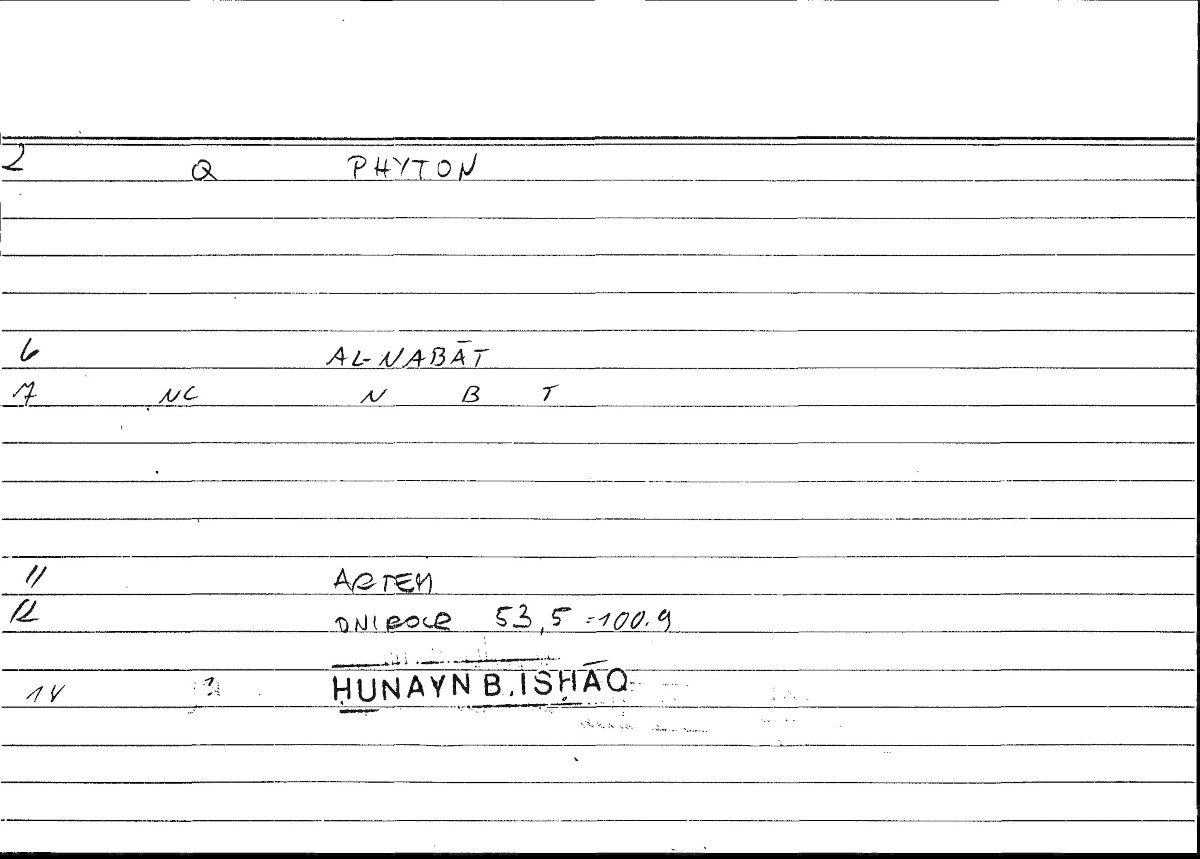 2 Q PHYTON
6 AL-NABĀT
7 NC N B T
11 ARTEM
12 ONIROCR 53,5 =100.9
14 ḤUNAYN B. ISḤĀQ